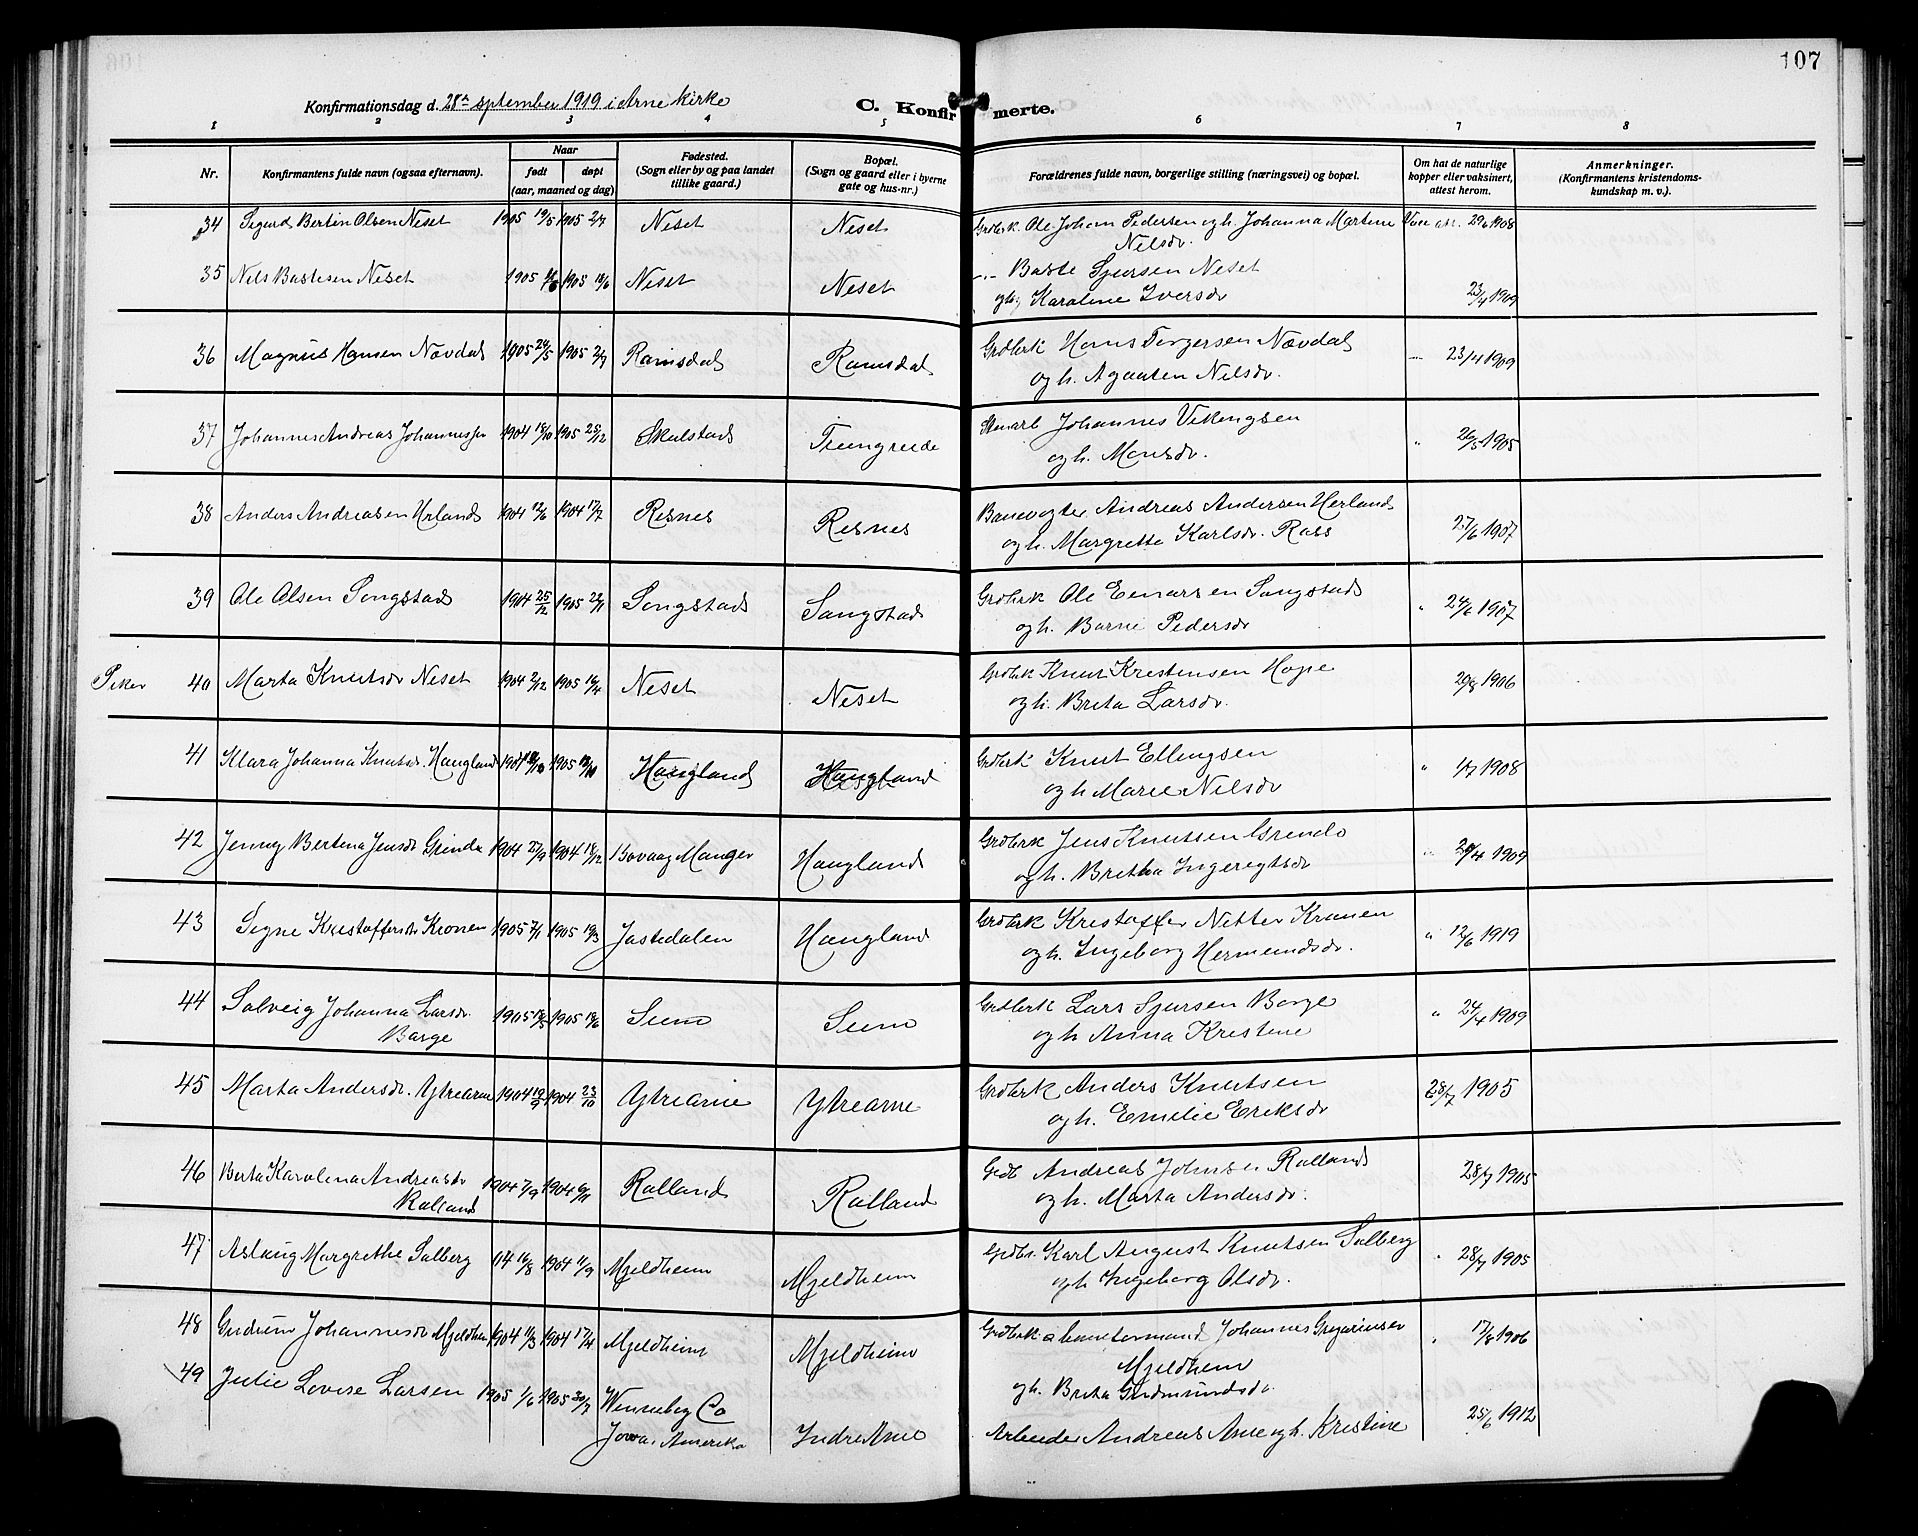 107
Konfirmationsdag d. 28de september 1919 i Arne kirke
C. Konfirmerte.
1 2 3 4 5 6 7 8
Nr.
Konfirmantens fulde navn (ogsaa efternavn).
Naar
født døpt
(aar, maaned og dag)
Fødested.
(Sogn eller by og paa landet
tillike gaard.)
Bopæl.
(Sogn og gaard eller i byerne
gate og hus-nr.)
Forældrenes fulde navn, borgerlige stilling (næringsvei) og bopæl.
Om hat de naturlige
kopper eller vaksinert,
attest herom.
Anmerkninger.
(Konfirmantens kristendoms-
kundskap m. v.)
34 Sigurd Bertin Olsen Neset 1905 19/5 1905 2/7 Neset Neset Grdbrk. Ole Johan Pedersen og h. Johanna Martine 29/6 1908
Nilsdr.
35 Nils Bastesen Neset 1905 1905 18/6 Neset Neset -"- Baste Sjursen Neset
og h. Karoline Iversdr 23/4 1909
36 Magnus Hansen Nævdal 1905 24/5 1905 2/7 Ramsdal Ramsdal Grdbrk Hans Torgersen Nævdal 23/4 1909
og h. Agaaten Nilsdr.
37 Johannes Andreas Johannessen 1904 18/10 1905 25/12 Skulstad Trengreide Johannes Vikingsen " 26/5 1905
og h. Monsdr.
38 Anders Andreasen Herland 1904 12/6 1904 17/7 Risnes Risnes Banevogter Andreas Andersen Herland 27/6 1907
og h. Margrette Karlsdr. Ross
39 Ole Olsen Songstad 1904 25/12 1905 22/1 Songstad Songstad Grdbrk Ole Einarsen Songstad " 24/6 1907
og h. Barni Pedersdr
Piker 40 Marta Knutsdr Neset 1904 2/12 1905 16/4 Neset Neset Grdbrk Knut Kristensen Hope 20/8 1906
og h. Brita Larsdr.
41 Klara Johanna Knutsdr. Haugland 1904 1905 Haugland Haugland Grdbrk Knut Ellingsen " 1/7 1908
og h Marie Nilsdr
42 Jenny Bertina Jensdr Grinde 1904 27/9 1904 18/12 Bovaag Manger Haugland Grdbrk Jens Knutsen Grinde " 20/4 1909
og h. Britha Ingerigtsdr
43 Signe Kristoffersdr Kronen 1905 7/1 1905 19/3 Jostedalen Haugland Grdbrk Kristoffer Nitter Kronen " 12/6 1919
og h. Ingeborg Hermundsdr.
44 Solveig Johanna Larsdr. 1905 18/5 1905 18/6 Seim Seim Grdbrk Lars Sjursen Borge " 24/4 1909
Borge og h Anna Kristine
45 Marta Andersdr. Ytrearne 1904 19/9 1904 23/10 Ytrearne Ytrearne Grdbrk Anders Knutsen 28/7 1905
og h. Emilie Eriksdr
46 Berta Karolina Andreasdr 1904 7/9 1904 6/11 Rolland Rolland Grdb Andreas Johnsen Rolland 28/7 1905
Rolland og h. Marta Andersdr.
47 Aslaug Margrethe Solberg 04 16/8 1904 11/9 Mjeldheim Mjeldheim Grdbr. Karl August Knutsen Solberg " 28/7 1905
og h Ingeborg Olsdr.
48 Gudrun Johannesdr Mjeldheim 1904 11/3 1904 17/4 Mjeldheim Mjeldheim Grdbrk Johannes Gregoriusen " 17/8 1906
Mjeldheim
og h. Brita Gudmundsdr.
49 Julie Lovise Larsen 1905 1/6 1905 30/7 Winnebeg Co
Jowa, Amerika Indre Arne Arbeider Andreas Arne og h. Kristine 25/6 1912